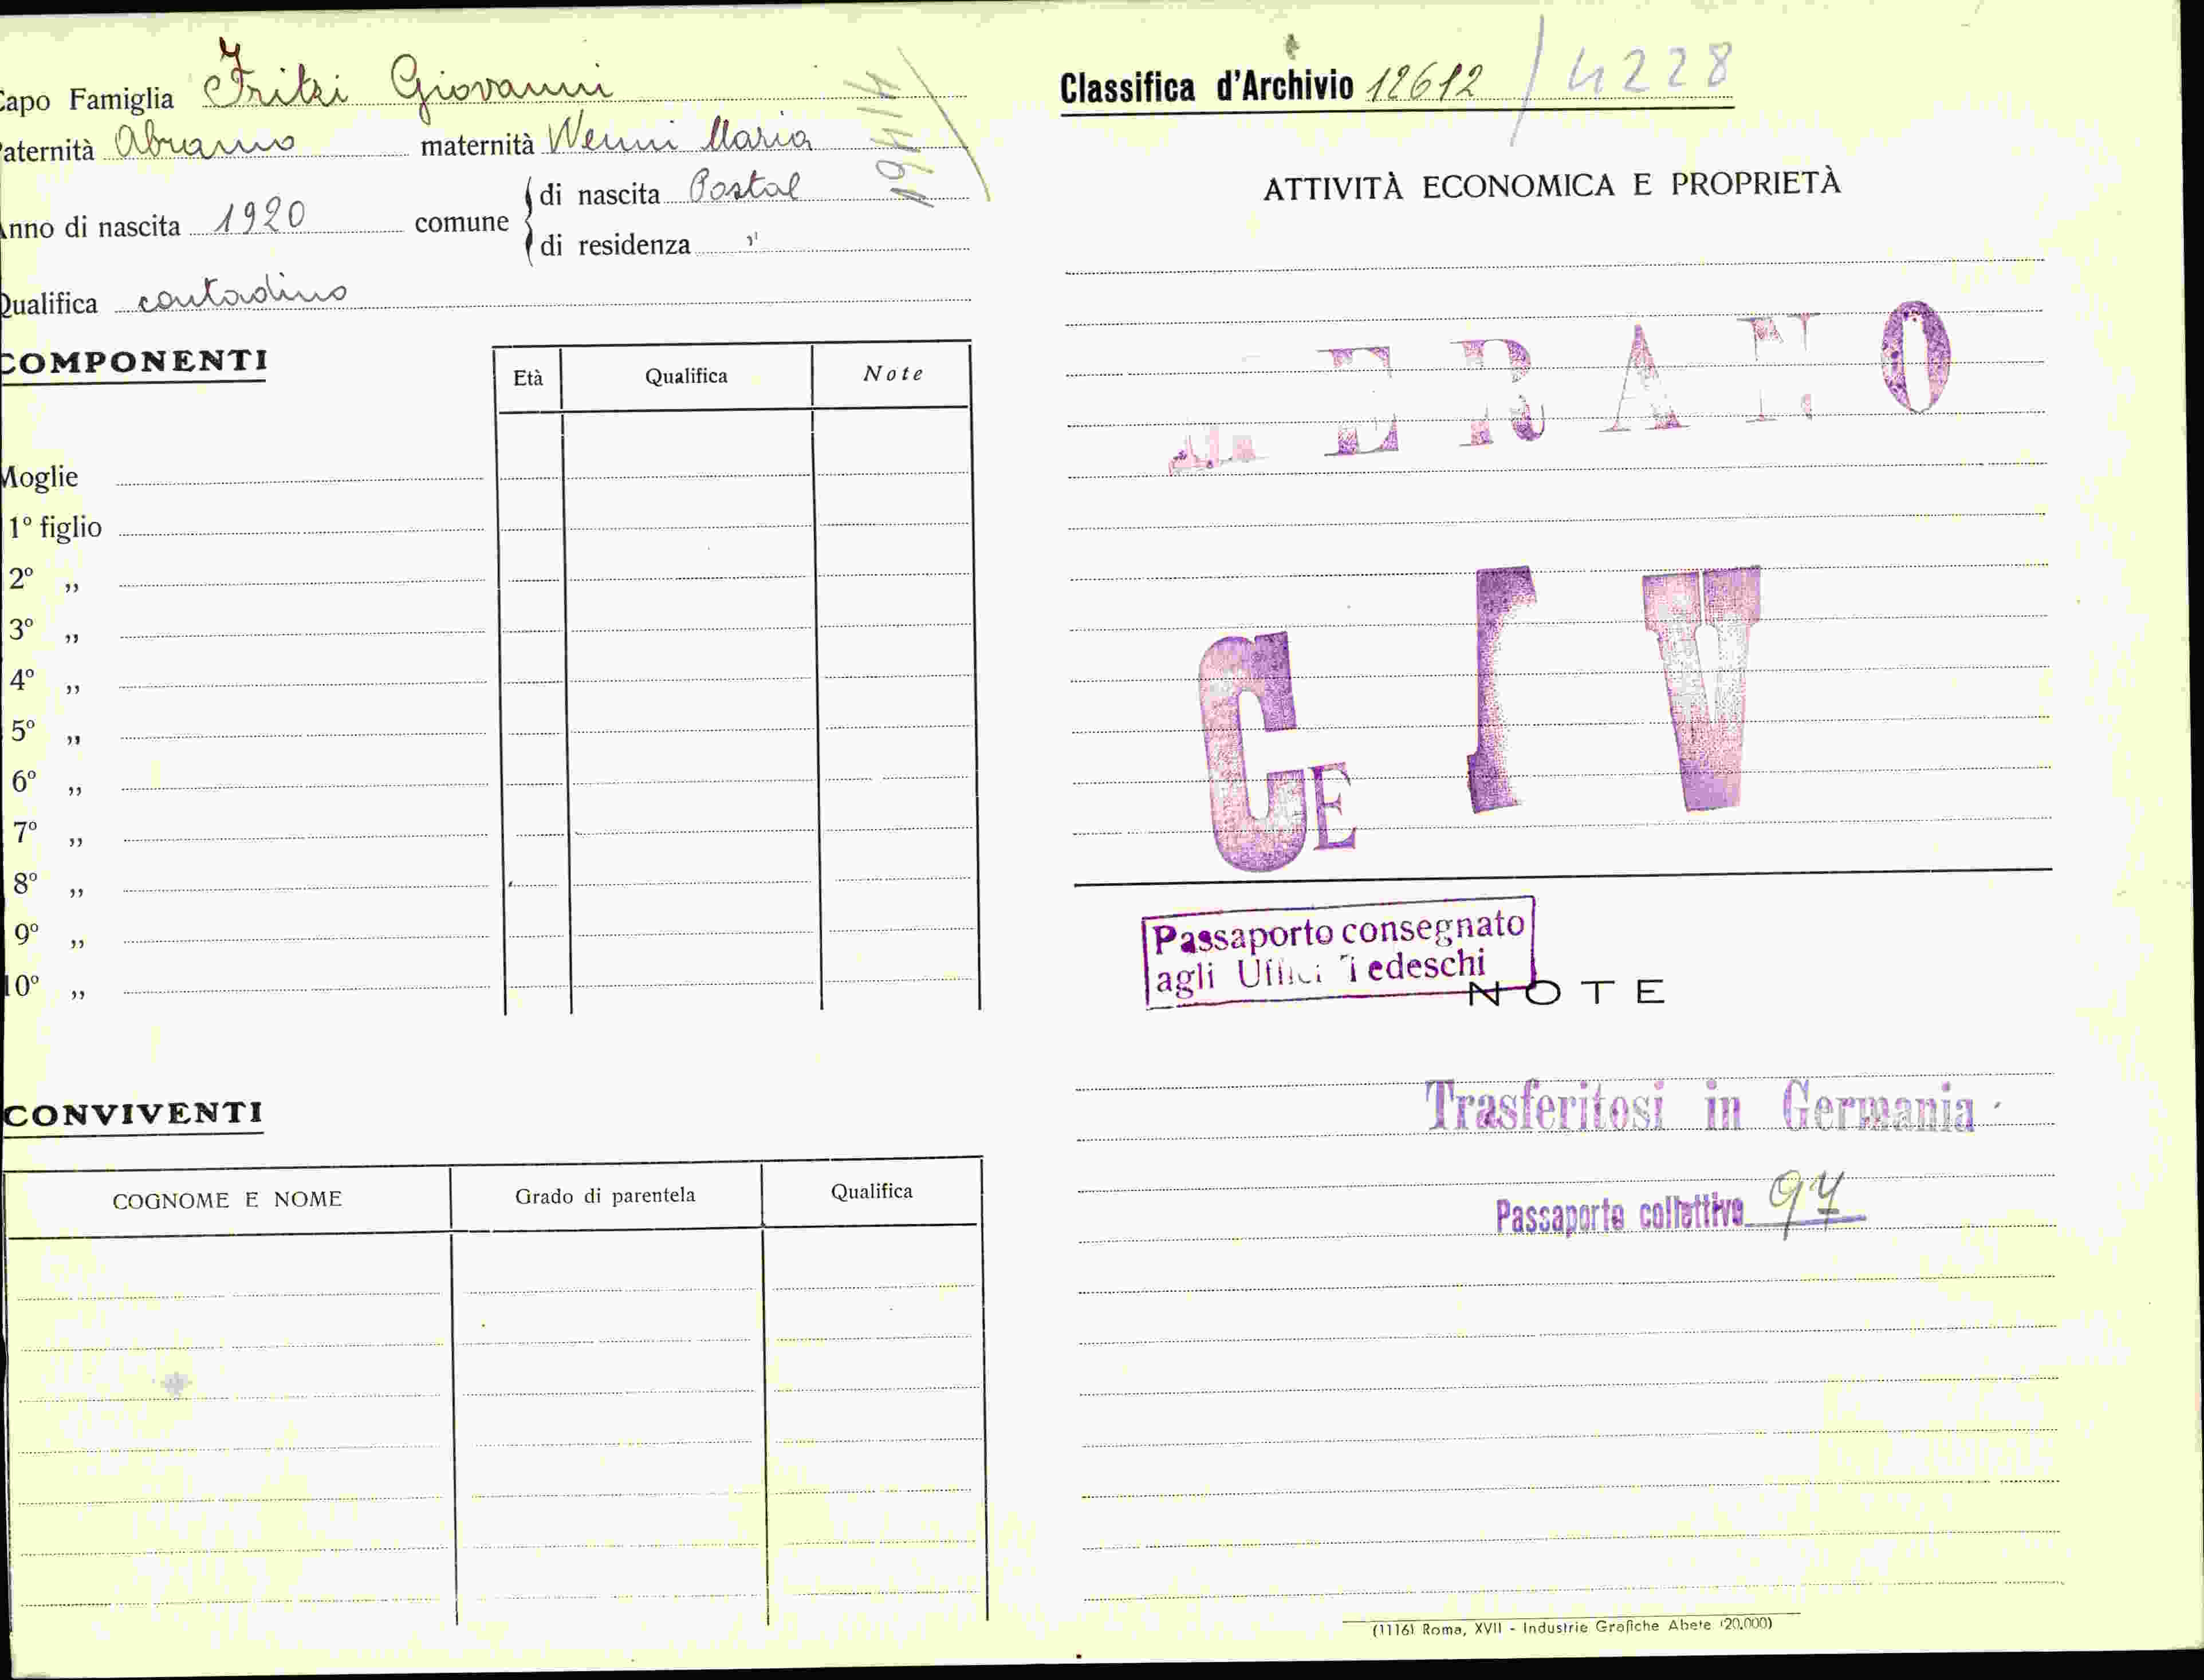 Capo Famiglia Fritzi Giovanni
Paternità Abramo maternità Wenni Maria
Anno di nascita 1920 comune di nascita Postal
di residenza "
Qualifica contadino
COMPONENTI
Età Qualifica Note
Moglie
1º figlio
2º „
3º „
4º „
5º „
6º „
7º „
8º „
9º „
10º „
CONVIVENTI
COGNOME E NOME Grado di parentela Qualifica
Classifica d'Archivio 12612 / 4228
ATTIVITÀ ECONOMICA E PROPRIETÀ
MERANO
CE IV
Passaporto consegnato
agli Uffici Tedeschi
NOTE
Trasferitosi in Germania
Passaporto collettivo 97
(1116) Roma, XVII - Industrie Grafiche Abete (20.000)